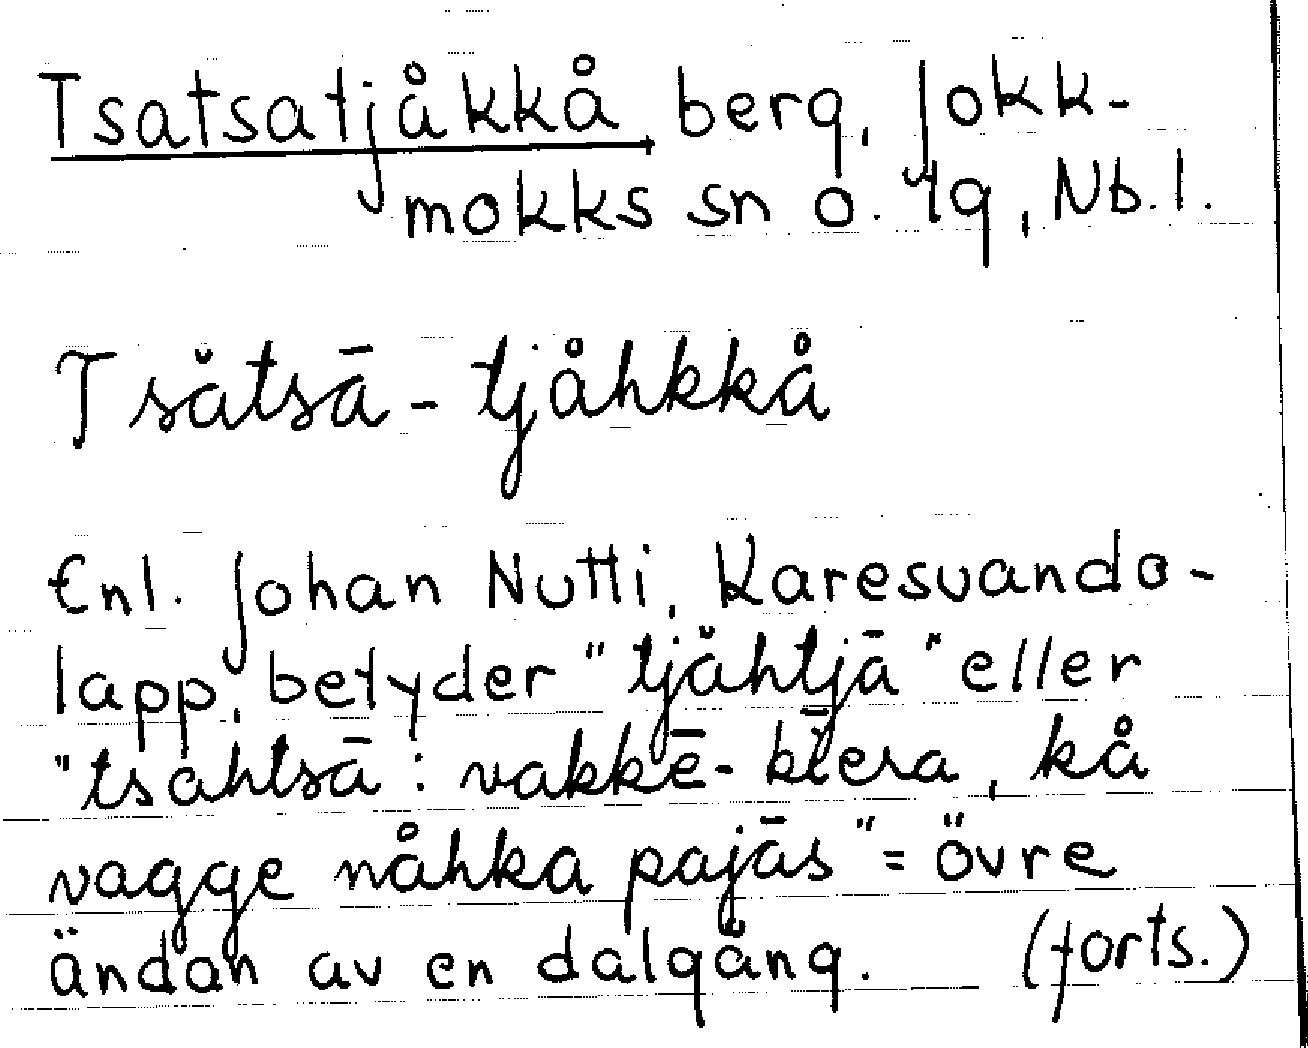 Tsatsatjåkkå, berg, Jokk-
mokks sn o. tg, Nb.l.
Tsătsā-tjåhkkå
Enl. Johan Nutti, Karesuando-
lapp, betyder "tjăhtjā" eller
"tsáhtsā: vakkē- kīera, kå
vagge nåhka pajās" = övre
ändan av en dalgång. (forts.)